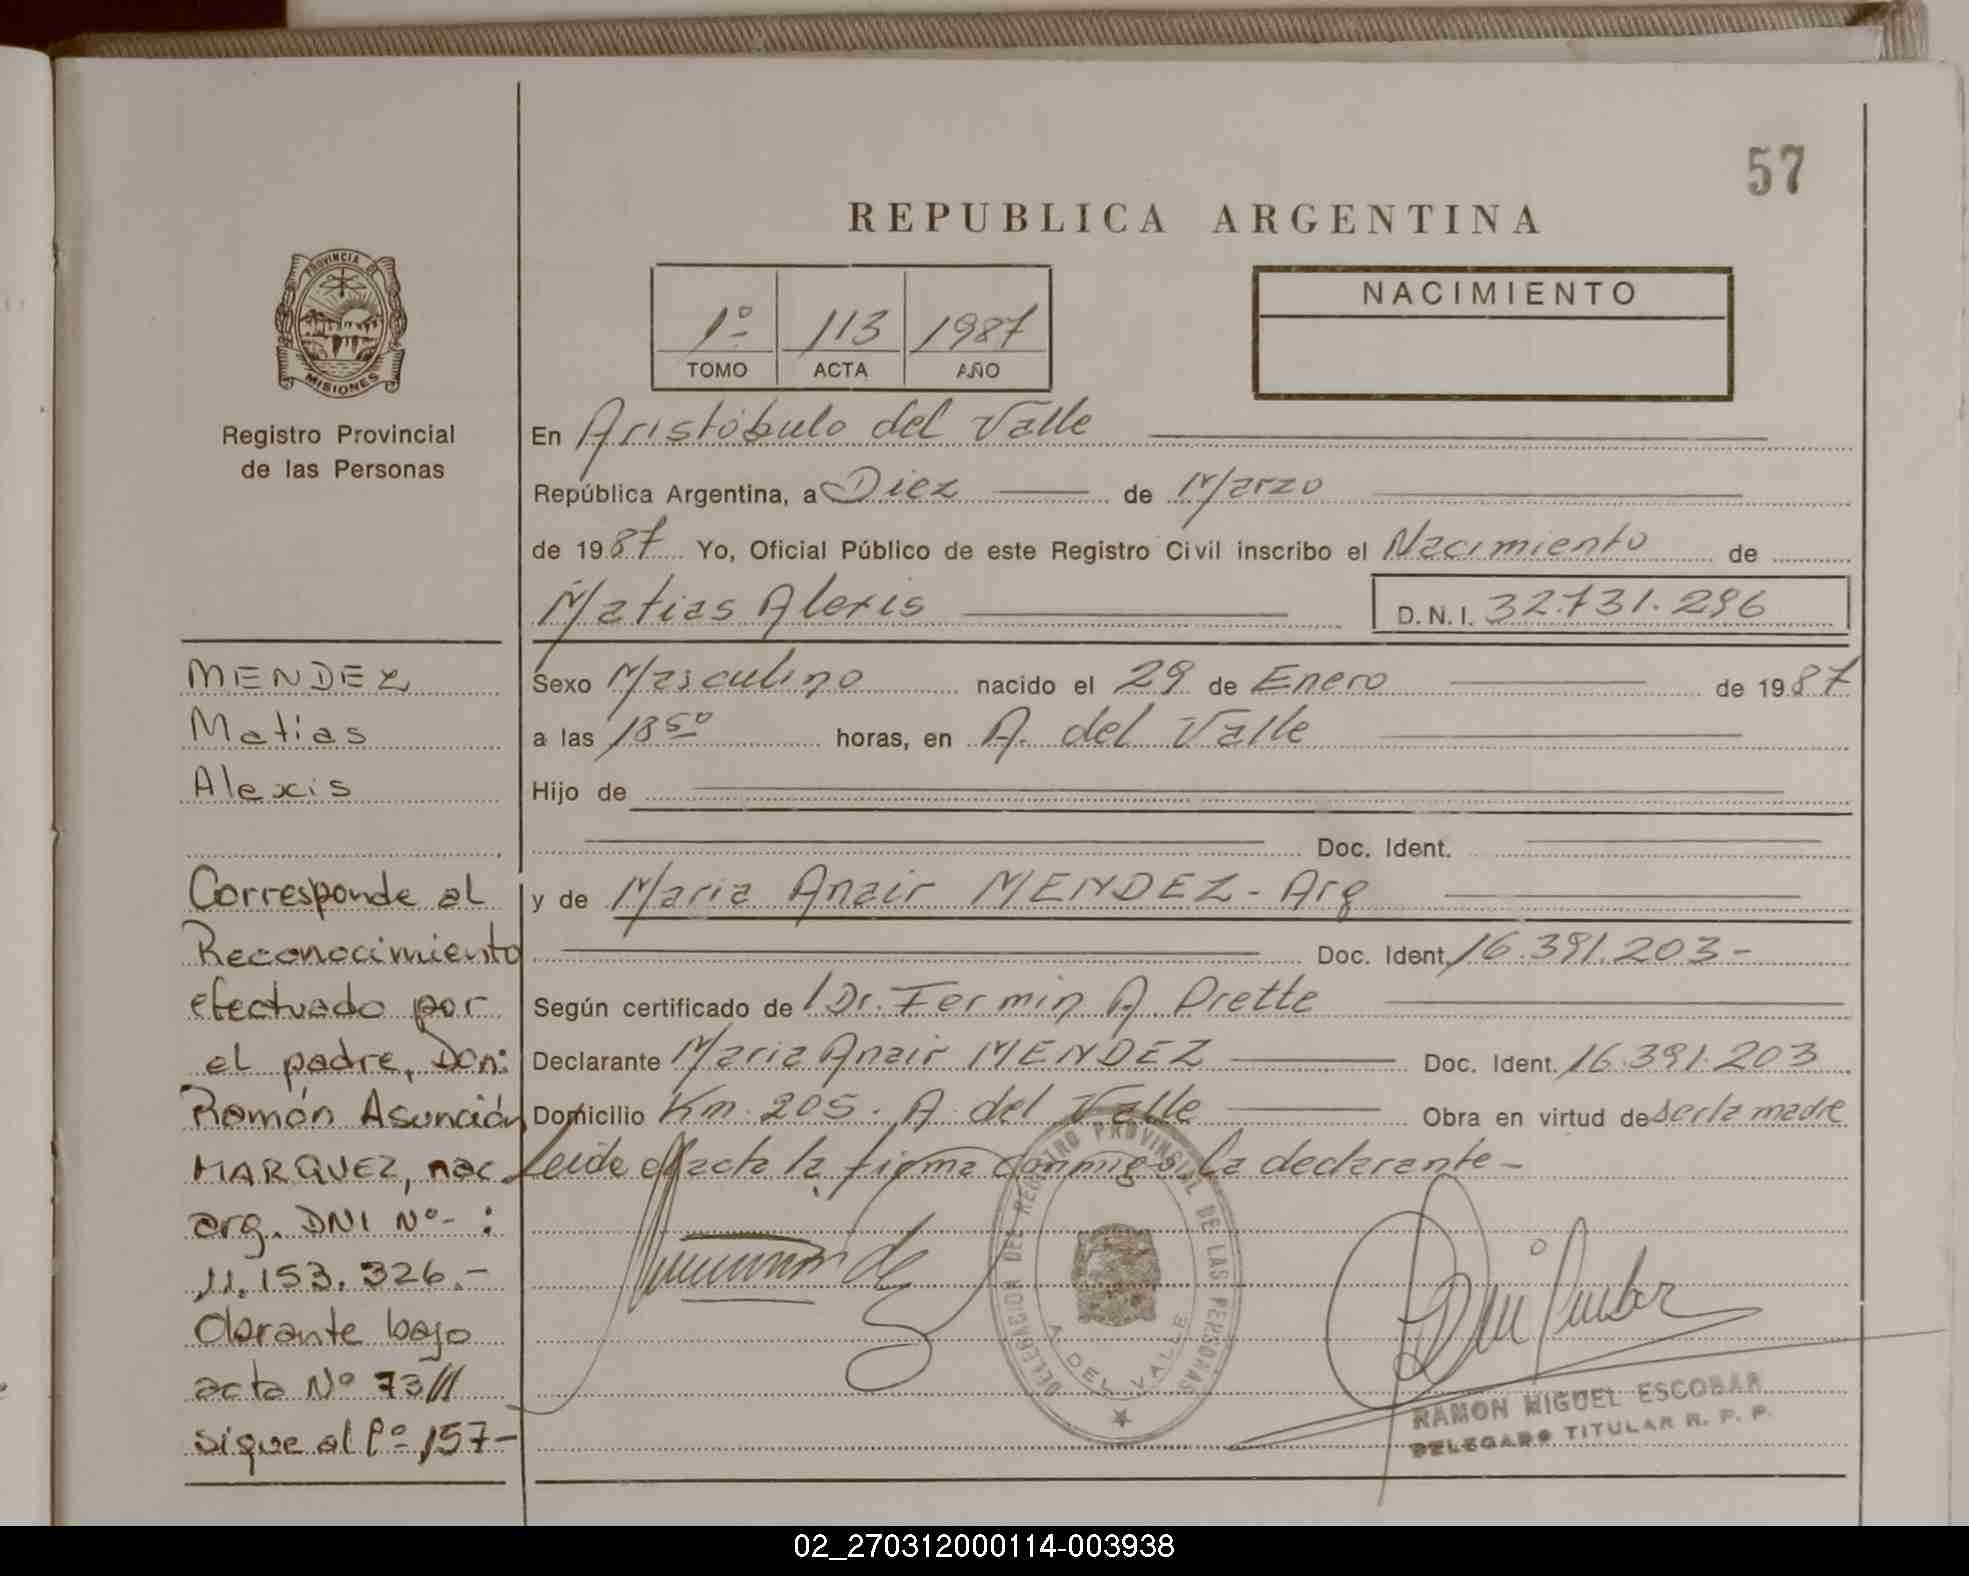 57
REPUBLICA ARGENTINA
PROVINCIA DE
MISIONES
Registro Provincial
de las Personas
1º 113 1987
TOMO ACTA AÑO
NACIMIENTO
En Aristóbulo del Valle
República Argentina, a Diez de Marzo
de 1987 Yo, Oficial Público de este Registro Civil inscribo el Nacimiento de
Matias Alexis D.N.I. 32.731.296
Sexo Masculino nacido el 29 de Enero de 1987
a las 18⁵⁰ horas, en A. del Valle
Hijo de
Doc. Ident.
y de Maria Anair MENDEZ - Arg
Doc. Ident. 16.391.203-
Según certificado de Dr. Fermin A. Prette
Declarante Maria Anair MENDEZ Doc. Ident. 16.391.203
Domicilio Km. 205. A. del Valle Obra en virtud de ser la madre
Leida el acta la firma conmigo la declarante-
MENDEZ
Matias
Alexis
Corresponde al
Reconocimiento
efectuado por
el padre, Don:
Ramón Asunción
MARQUEZ, nac.
arg. DNI Nº- :
11.153.326.-
Obrante bajo
acta Nº 73///
sigue al fº 157-
DELEGACION DEL REGISTRO PROVINCIAL DE LAS PERSONAS
A. DEL VALLE
RAMON MIGUEL ESCOBAR
DELEGADO TITULAR R. P. P.
02_270312000114-003938